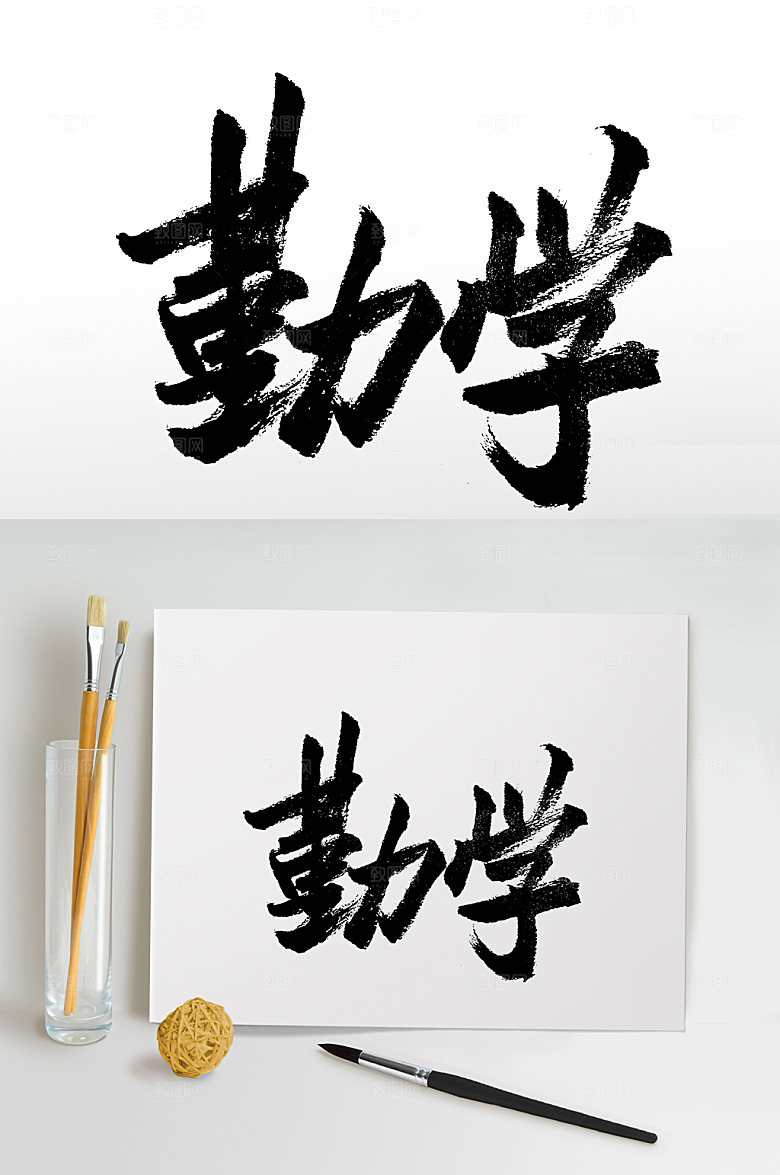 勤学
勤学